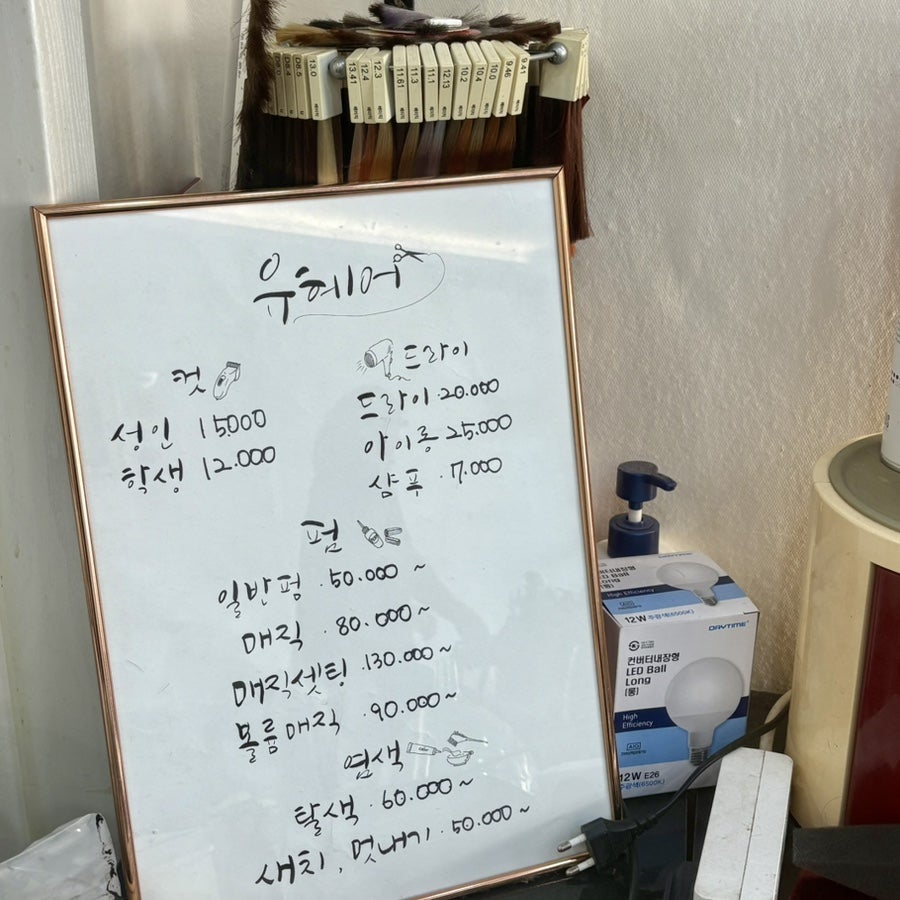 13.0
13.41
12.4
12.3
11.61
11.3
11.1
12.13
10.2
10.4
10.0
9.46
9.41
유헤어
컷
성인 15000
학생 12.000
드라이
드라이 · 20.000
아이롱 25.000
샴푸 · 7.000
펌
일반펌 · 50.000 ~
매직 · 80.000 ~
매직셋팅 · 130.000 ~
볼륨매직 · 90.000 ~
염색
탈색 · 60.000 ~
새치, 멋내기 · 50.000 ~
LED Ball
Long
(롱)
High Efficiency
12W 주광색(6500K)
DAYTIME
컨버터내장형
LED Ball
Long
(롱)
High
Efficiency
12W E26
주광색(6500K)